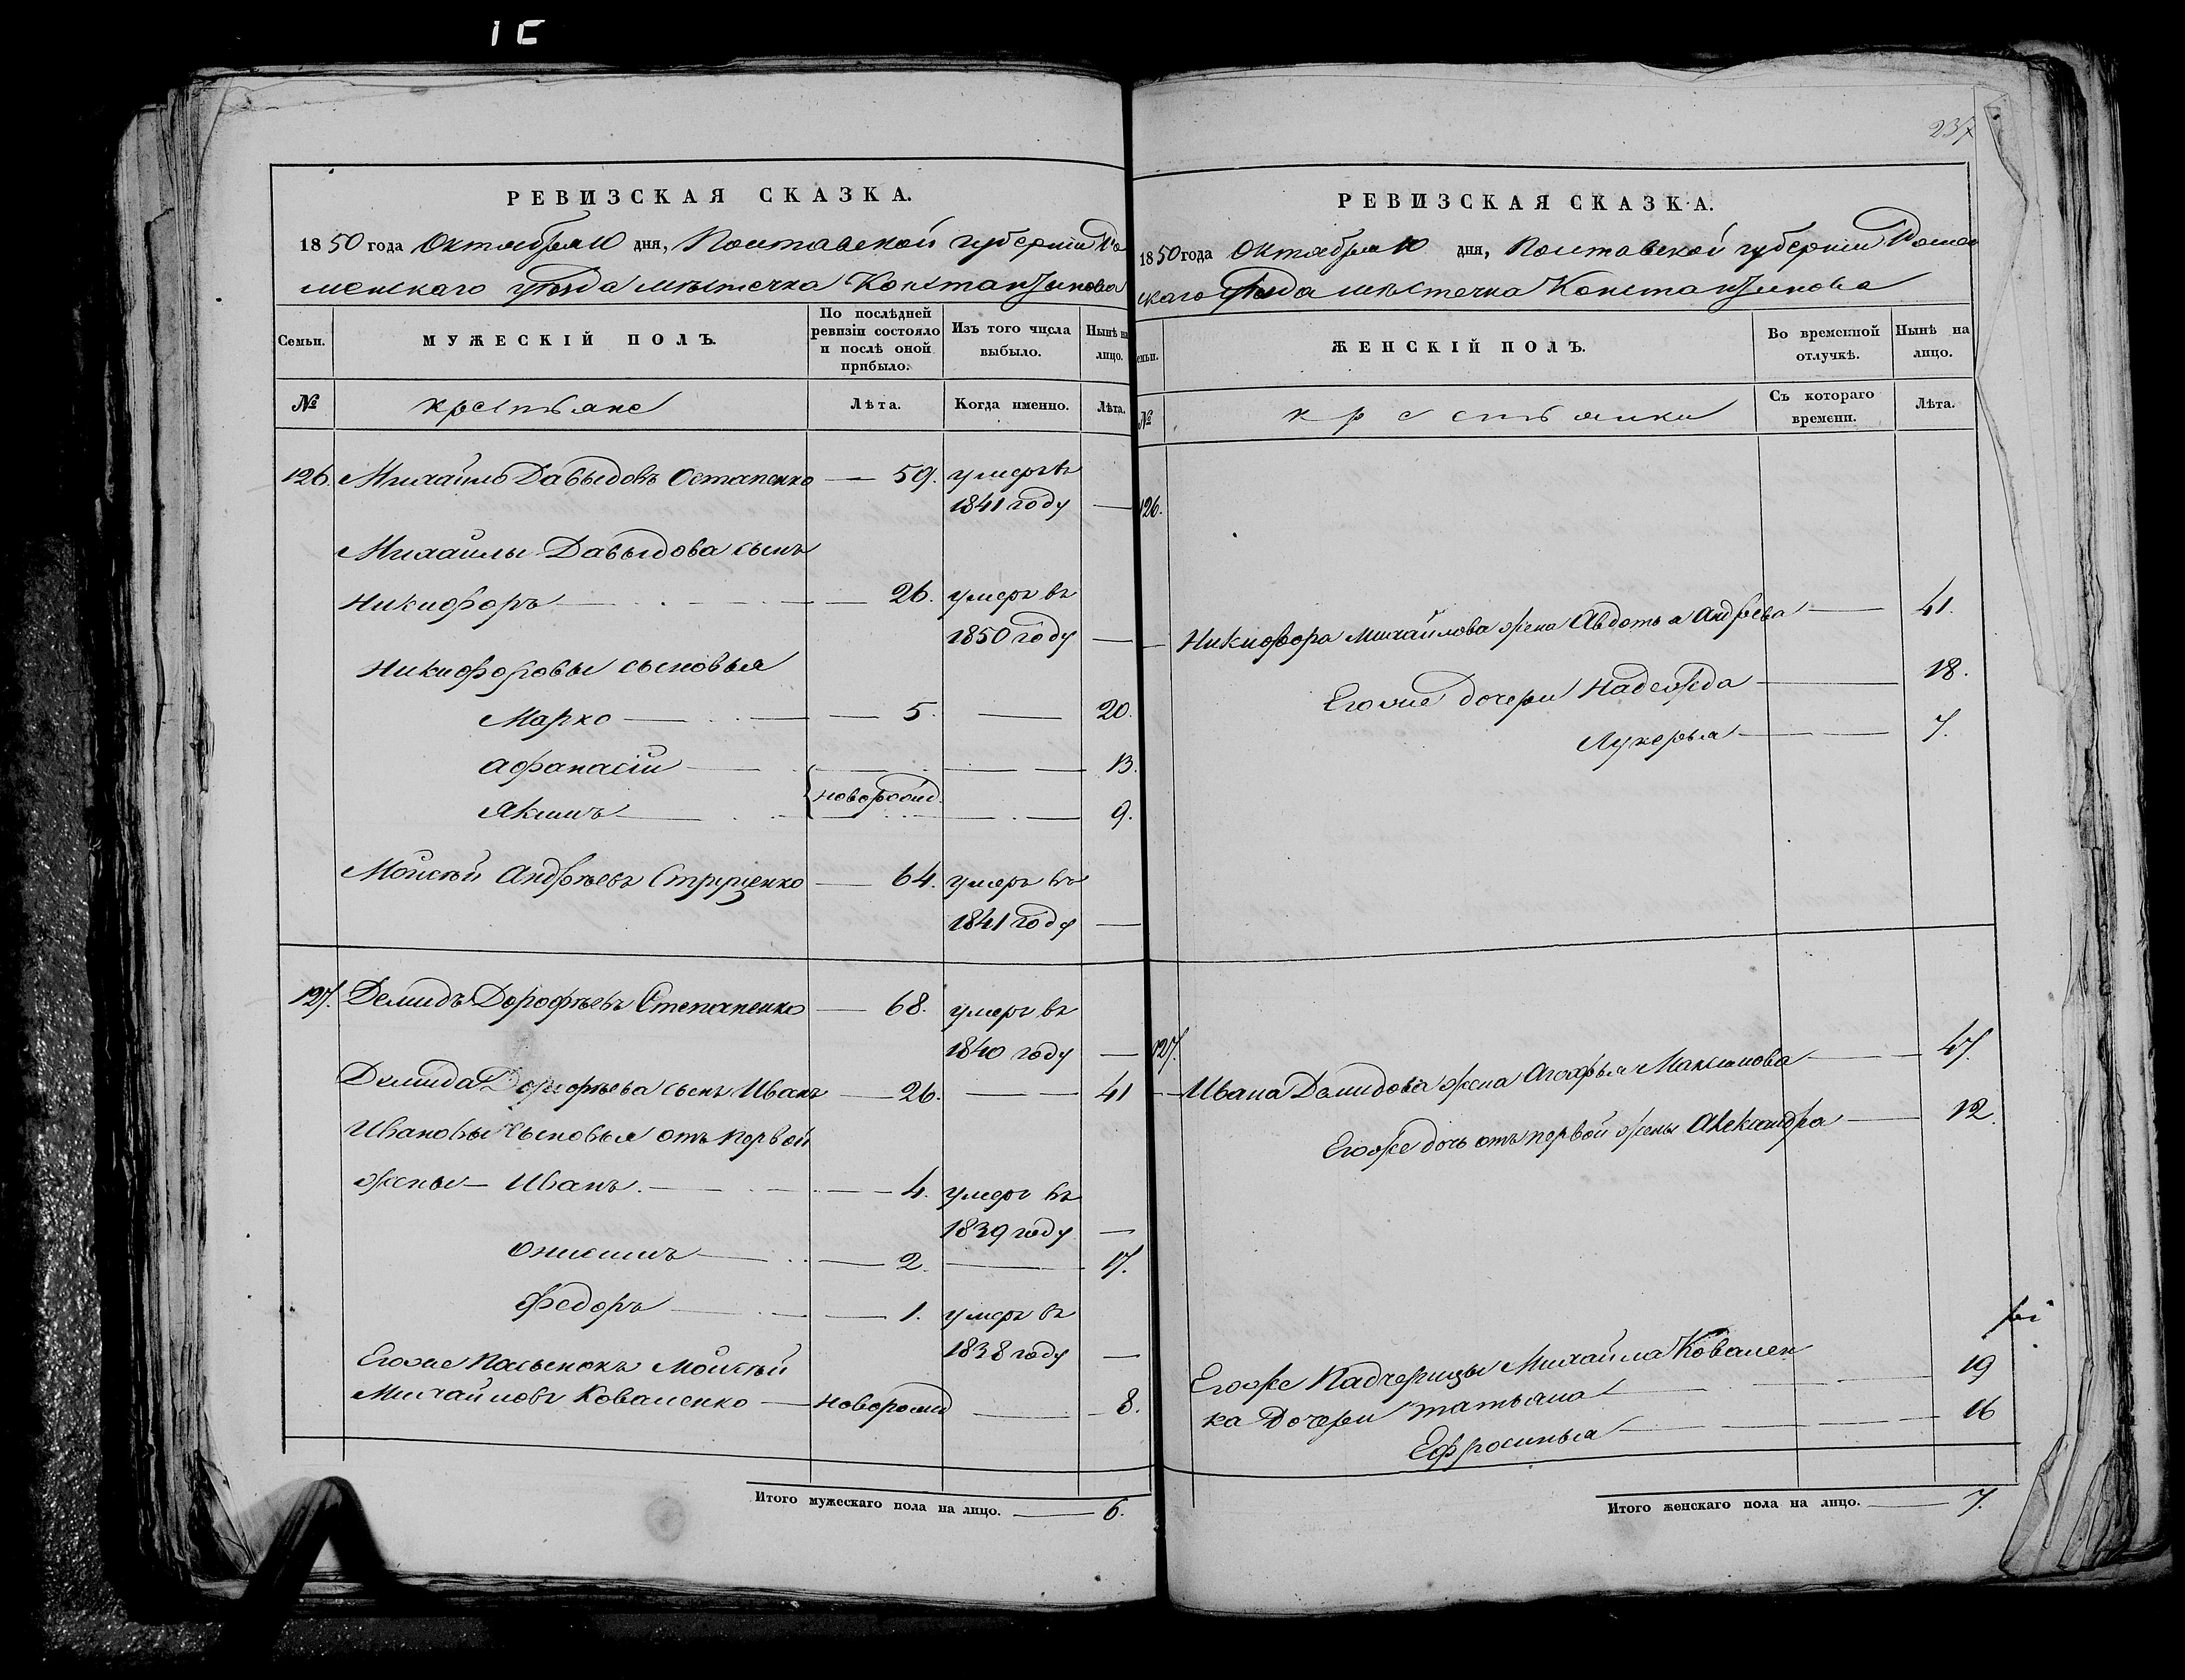 1 С
РЕВИЗСКАЯ СКАЗКА.
1850 года Октября 10 дня, Полтавской губерніи Ро
менскаго уѣзда мѣстечка Константинова
Семьи.
МУЖЕСКІЙ ПОЛЪ.
По послѣдней
ревизіи состояло
и послѣ оной
прибыло.
Изъ того числа
выбыло.
Нынѣ на
лицо.
№
крестьяне
Лѣта.
Когда именно.
Лѣта.
126. Михайло Давыдовъ Остапенко — 59. умеръ въ
1841 году —
Михайлы Давыдова сынъ
Никифоръ — 26. умеръ въ
1850 году —
Никифоровы сыновья
Марко — 5. — 20.
Афанасій — — 13.
новорожд.
Якимъ — — 9.
Мойсѣй Андрѣевъ Струценко — 64. умеръ въ
1841 году —
127. Демидъ Дорофѣевъ Степаненко — 68. умеръ въ
1840 году —
Демида Дорофѣева сынъ Иванъ — 26. — 41
Ивановы сыновья отъ первой
жены — Иванъ. — 4. умеръ въ
1839 году —
Онисимъ — 2. — 17.
Федоръ — 1. умеръ въ
1838 году —
Егоже пасынокъ Мойсѣй
Михайловъ Коваленко — новорожд — 8.
Итого мужескаго пола на лицо. — 6.
237
РЕВИЗСКАЯ СКАЗКА.
1850 года Октября 10 дня, Полтавской губерніи Ромен
скаго уѣзда мѣстечка Константинова
емьи.
ЖЕНСКІЙ ПОЛЪ.
Во временной
отлучкѣ.
Нынѣ на
лицо.
№
крестьянки
Съ котораго
времени.
Лѣта.
126.
Никифора Михайлова жена Авдотья Андрѣева — 41.
Егоже дочери Надежда — 18.
Лукерья — 7.
127.
Ивана Демидова жена Агафья Максимова — 47.
Егоже дочь отъ первой жены Александра — 12.
Егоже Падчерицы Михайла Ковален
ка Дочери Татьяна — 19
Ефросинья — 16
Итого женскаго пола на лицо. — 7.